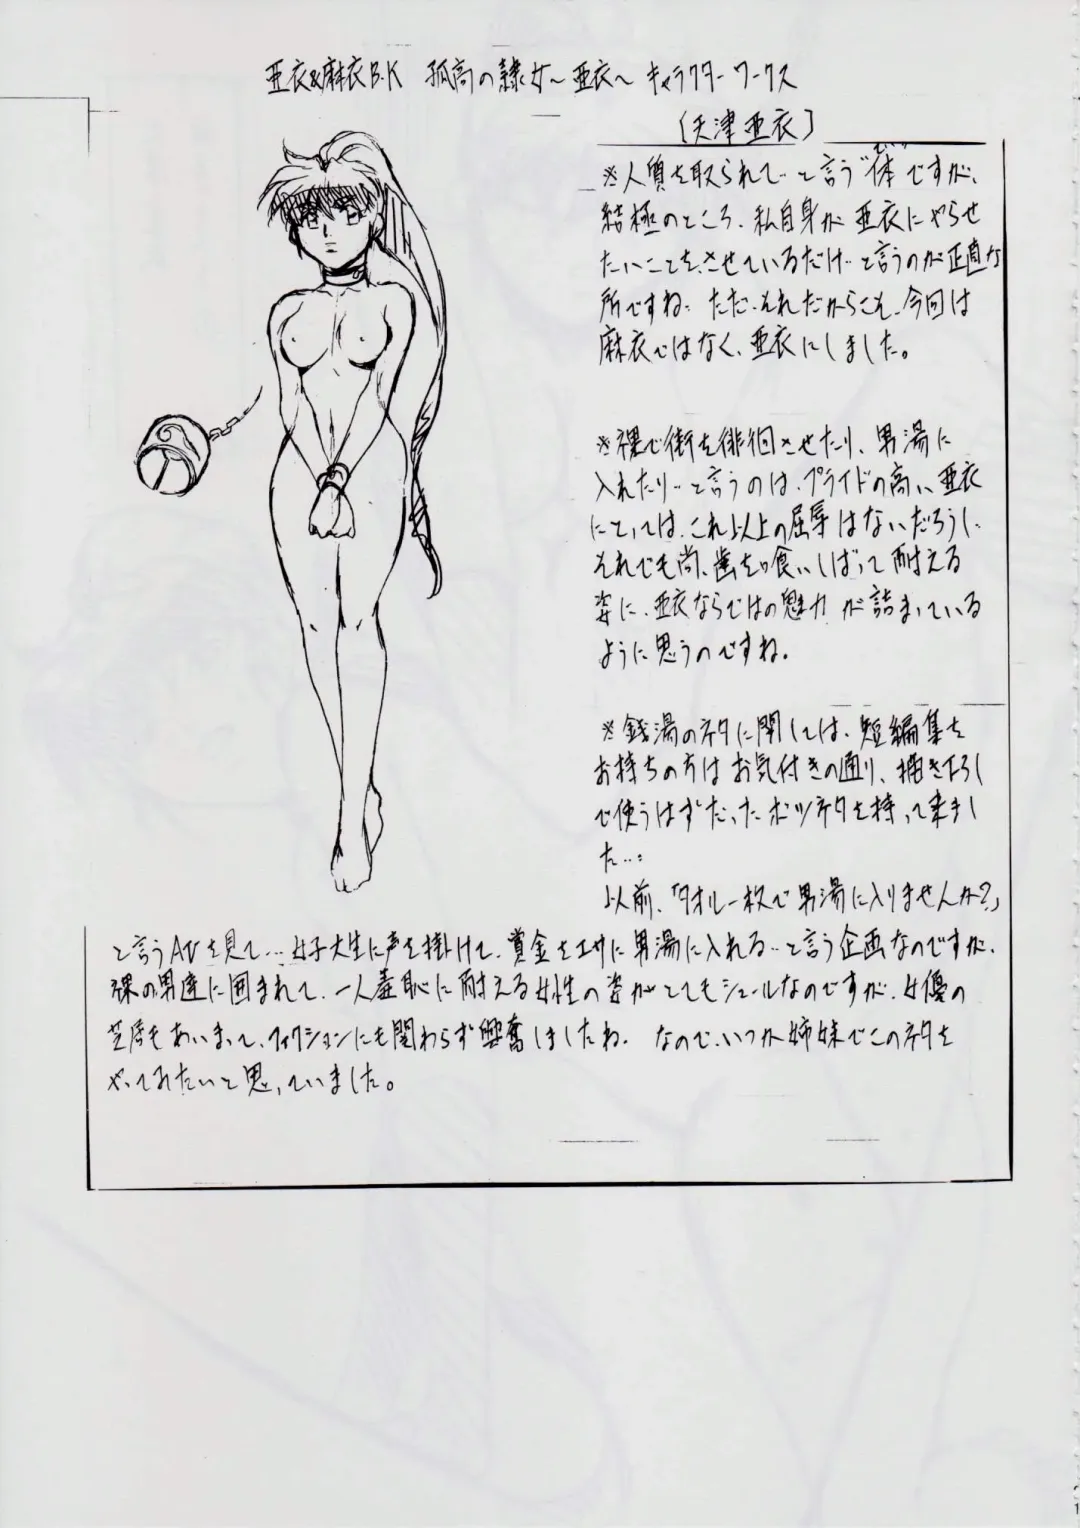 亜衣&麻衣B.K 孤高の隷女～亜衣～ キャラクターワークス
〔天津亜衣〕
※人質を取られて…と言う"体"ですが、
結極のところ、私自身が亜衣にやらせ
たいことを、させているだけ…と言うのが正直な
所ですね… ただ、それだからこそ、今回は
麻衣ではなく、亜衣にしました。
※裸で街を徘徊させたり、男湯に
入れたり…と言うのは、プライドの高い、亜衣
にとっては、これ以上の屈辱はないだろうし、
それでも尚、歯を喰いしばって耐える
姿に、亜衣ならではの魅力が詰まっている
ように思うのですね。
※銭湯のネタに関しては、短編集を
お持ちの方はお気付きの通り、描き下ろし
で使うはずだったボツネタを持って来まし
た…。
以前、「タオル一枚で男湯に入りませんか?」
と言うAVを見て…女子大生に声を掛けて、賞金をエサに男湯に入れる…と言う企画なのですが、
裸の男達に囲まれて、一人羞恥に耐える女性の姿がとてもシュールなのですが、女優の
芝居もあいまって、フィクションにも関わらず興奮しましたね。 なので、いつか姉妹でこのネタを
やってみたいと思っていました。